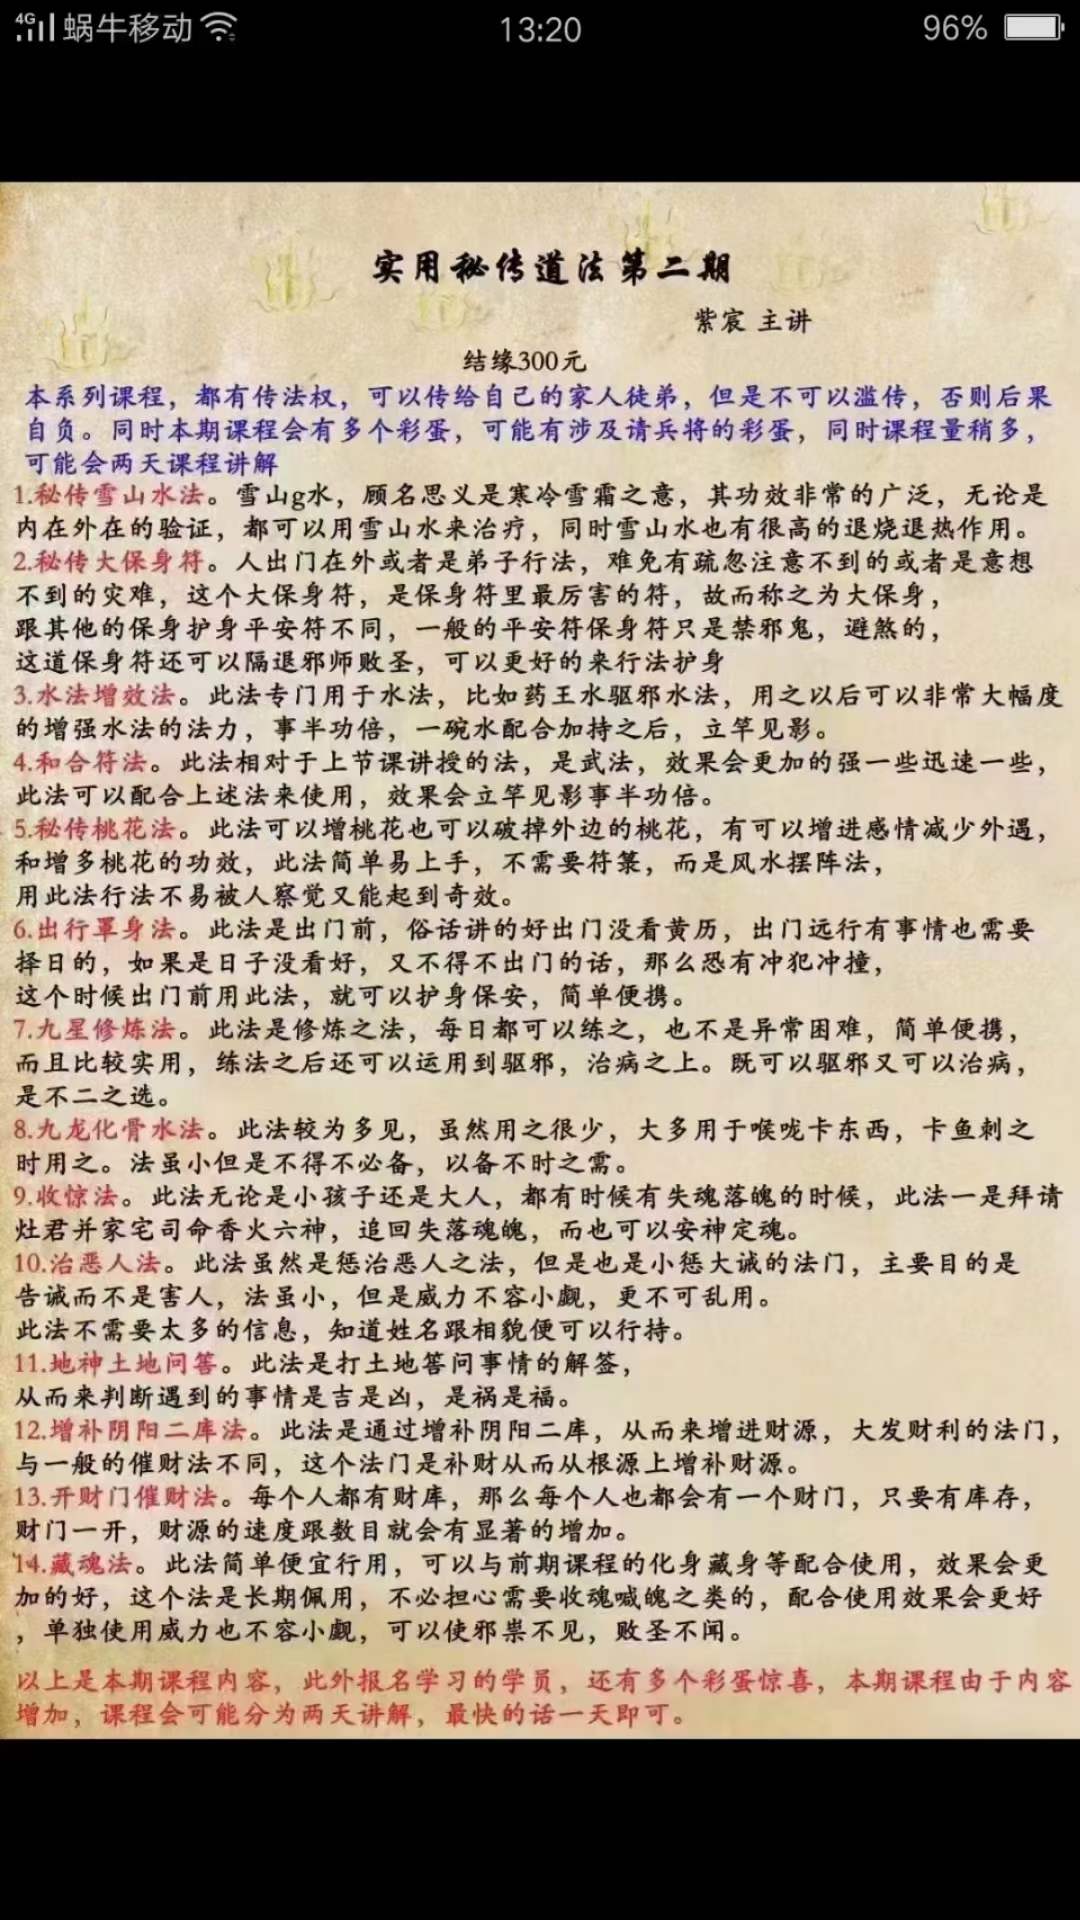 4G 蜗牛移动 13:20 96%
实用秘传道法第二期
紫宸 主讲
结缘300元
本系列课程，都有传法权，可以传给自己的家人徒弟，但是不可以滥传，否则后果
自负。同时本期课程会有多个彩蛋，可能有涉及请兵将的彩蛋，同时课程量稍多，
可能会两天课程讲解
1.秘传雪山水法。雪山g水，顾名思义是寒冷雪霜之意，其功效非常的广泛，无论是
内在外在的验证，都可以用雪山水来治疗，同时雪山水也有很高的退烧退热作用。
2.秘传大保身符。人出门在外或者是弟子行法，难免有疏忽注意不到的或者是意想
不到的灾难，这个大保身符，是保身符里最厉害的符，故而称之为大保身，
跟其他的保身护身平安符不同，一般的平安符保身符只是禁邪鬼，避煞的，
这道保身符还可以隔退邪师败圣，可以更好的来行法护身
3.水法增效法。此法专门用于水法，比如药王水驱邪水法，用之以后可以非常大幅度
的增强水法的法力，事半功倍，一碗水配合加持之后，立竿见影。
4.和合符法。此法相对于上节课讲授的法，是武法，效果会更加的强一些迅速一些，
此法可以配合上述法来使用，效果会立竿见影事半功倍。
5.秘传桃花法。此法可以增桃花也可以破掉外边的桃花，有可以增进感情减少外遇，
和增多桃花的功效，此法简单易上手，不需要符箓，而是风水摆阵法，
用此法行法不易被人察觉又能起到奇效。
6.出行罩身法。此法是出门前，俗话讲的好出门没看黄历，出门远行有事情也需要
择日的，如果是日子没看好，又不得不出门的话，那么恐有冲犯冲撞，
这个时候出门前用此法，就可以护身保安，简单便携。
7.九星修炼法。此法是修炼之法，每日都可以练之，也不是异常困难，简单便携，
而且比较实用，练法之后还可以运用到驱邪，治病之上。既可以驱邪又可以治病，
是不二之选。
8.九龙化骨水法。此法较为多见，虽然用之很少，大多用于喉咙卡东西，卡鱼刺之
时用之。法虽小但是不得不必备，以备不时之需。
9.收惊法。此法无论是小孩子还是大人，都有时候有失魂落魄的时候，此法一是拜请
灶君并家宅司命香火六神，追回失落魂魄，而也可以安神定魂。
10.治恶人法。此法虽然是惩治恶人之法，但是也是小惩大诫的法门，主要目的是
告诫而不是害人，法虽小，但是威力不容小觑，更不可乱用。
此法不需要太多的信息，知道姓名跟相貌便可以行持。
11.地神土地问答。此法是打土地筶问事情的解签，
从而来判断遇到的事情是吉是凶，是祸是福。
12.增补阴阳二库法。此法是通过增补阴阳二库，从而来增进财源，大发财利的法门，
与一般的催财法不同，这个法门是补财从而从根源上增补财源。
13.开财门催财法。每个人都有财库，那么每个人也都会有一个财门，只要有库存，
财门一开，财源的速度跟数目就会有显著的增加。
14.藏魂法。此法简单便宜行用，可以与前期课程的化身藏身等配合使用，效果会更
加的好，这个法是长期佩用，不必担心需要收魂喊魄之类的，配合使用效果会更好
，单独使用威力也不容小觑，可以使邪祟不见，败圣不闻。
以上是本期课程内容，此外报名学习的学员，还有多个彩蛋惊喜，本期课程由于内容
增加，课程会可能分为两天讲解，最快的话一天即可。